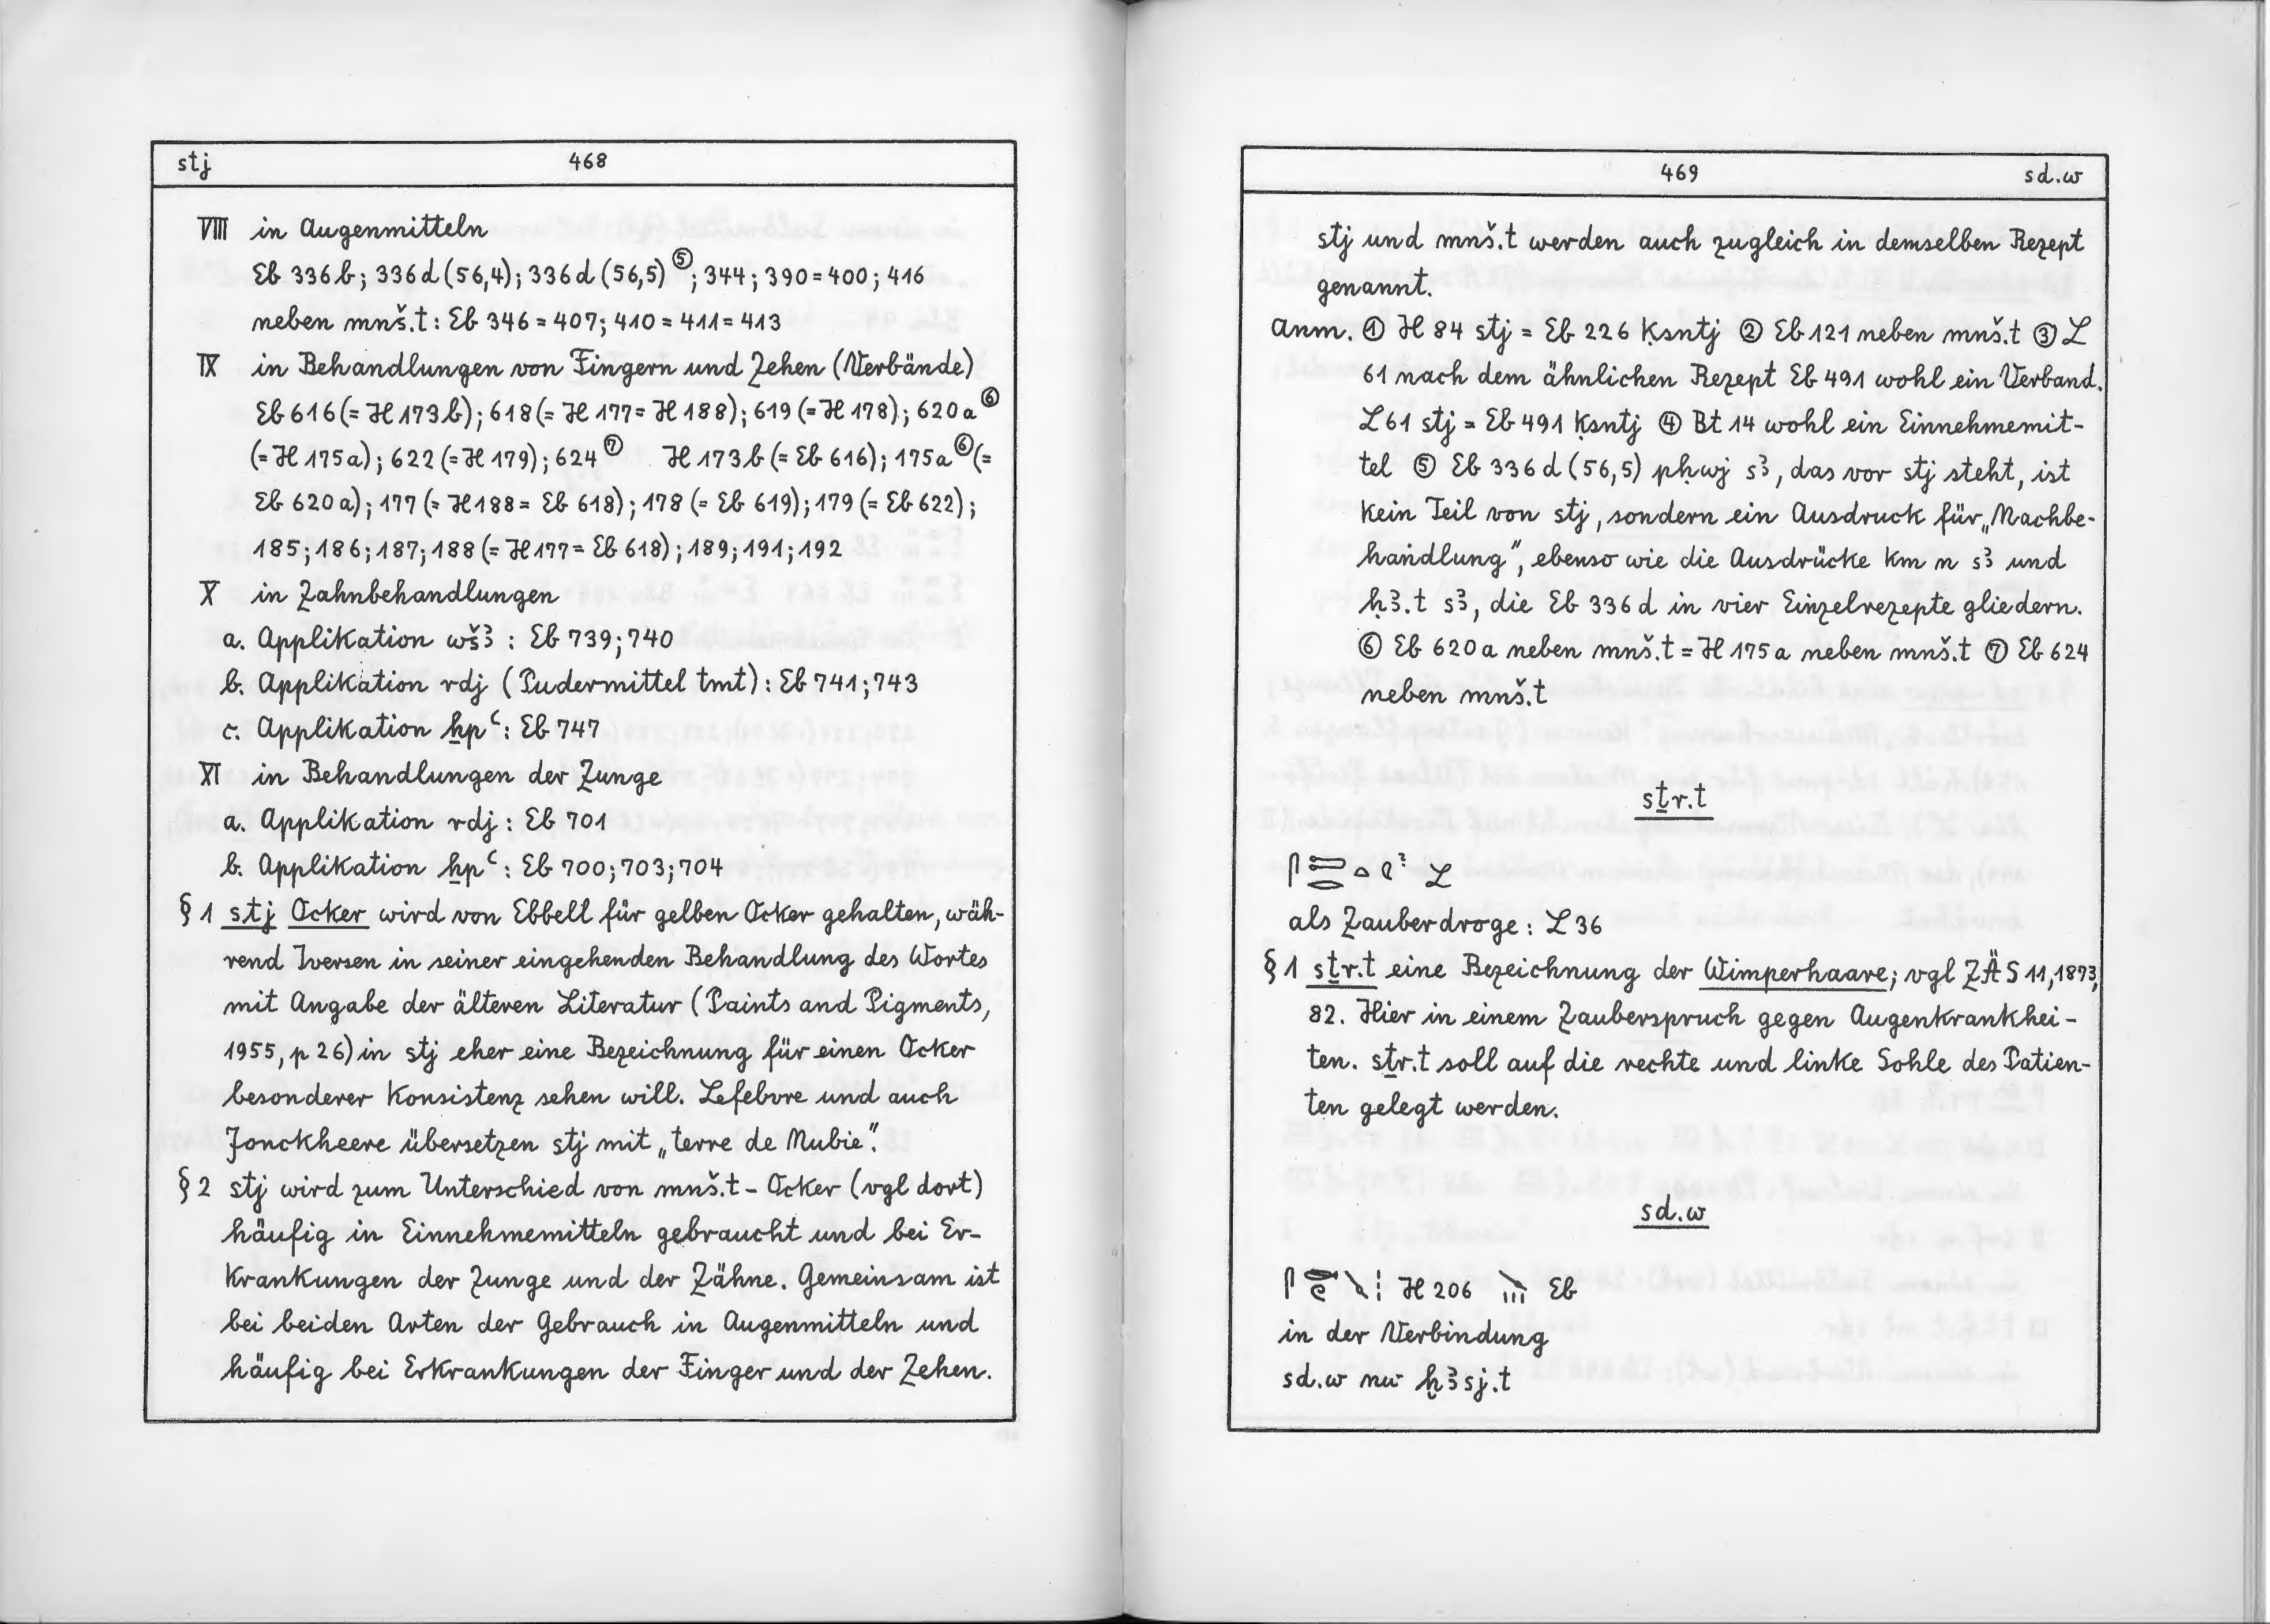 stj 468
VIII in Augenmitteln
Eb 336b; 336d (56,4); 336d (56,5) ⑤; 344; 390 = 400; 416
neben mnš.t: Eb 346 = 407; 410 = 411 = 413
IX in Behandlungen von Fingern und Zehen (Verbände)
Eb 616 (= H 173b); 618 (= H 177 = H 188); 619 (= H 178); 620a ⑥
(= H 175a); 622 (= H 179); 624 ⑦ H 173b (= Eb 616); 175a ⑥ (=
Eb 620a); 177 (= H 188 = Eb 618); 178 (= Eb 619); 179 (= Eb 622);
185; 186; 187; 188 (= H 177 = Eb 618); 189; 191; 192
X in Zahnbehandlungen
a. Applikation wšꜣ: Eb 739; 740
b. Applikation rdj (Pudermittel tmt): Eb 741; 743
c. Applikation ẖpꜥ: Eb 747
XI in Behandlungen der Zunge
a. Applikation rdj: Eb 701
b. Applikation ẖpꜥ: Eb 700; 703; 704
§ 1 stj Ocker wird von Ebbell für gelben Ocker gehalten, wäh-
rend Iversen in seiner eingehenden Behandlung des Wortes
mit Angabe der älteren Literatur (Paints and Pigments,
1955, p 26) in stj eher eine Bezeichnung für einen Ocker
besonderer Konsistenz sehen will. Lefebvre und auch
Jonckheere übersetzen stj mit „terre de Nubie".
§ 2 stj wird zum Unterschied von mnš.t-Ocker (vgl dort)
häufig in Einnehmemitteln gebraucht und bei Er-
krankungen der Zunge und der Zähne. Gemeinsam ist
bei beiden Arten der Gebrauch in Augenmitteln und
häufig bei Erkrankungen der Finger und der Zehen.
469 sd.w
stj und mnš.t werden auch zugleich in demselben Rezept
genannt.
Anm. ① H 84 stj = Eb 226 ḳsntj ② Eb 121 neben mnš.t ③ L
61 nach dem ähnlichen Rezept Eb 491 wohl ein Verband.
L 61 stj = Eb 491 ḳsntj ④ Bt 14 wohl ein Einnehmemit-
tel ⑤ Eb 336d (56,5) pḥwj sꜣ, das vor stj steht, ist
kein Teil von stj, sondern ein Ausdruck für „Nachbe-
handlung", ebenso wie die Ausdrücke km n sꜣ und
ḥꜣ.t sꜣ, die Eb 336d in vier Einzelrezepte gliedern.
⑥ Eb 620a neben mnš.t = H 175a neben mnš.t ⑦ Eb 624
neben mnš.t
sṯr.t
L
als Zauberdroge: L 36
§ 1 sṯr.t eine Bezeichnung der Wimperhaare; vgl ZÄS 11, 1873,
82. Hier in einem Zauberspruch gegen Augenkrankhei-
ten. sṯr.t soll auf die rechte und linke Sohle des Patien-
ten gelegt werden.
sd.w
H 206 Eb
in der Verbindung
sd.w nw ḫꜣsj.t